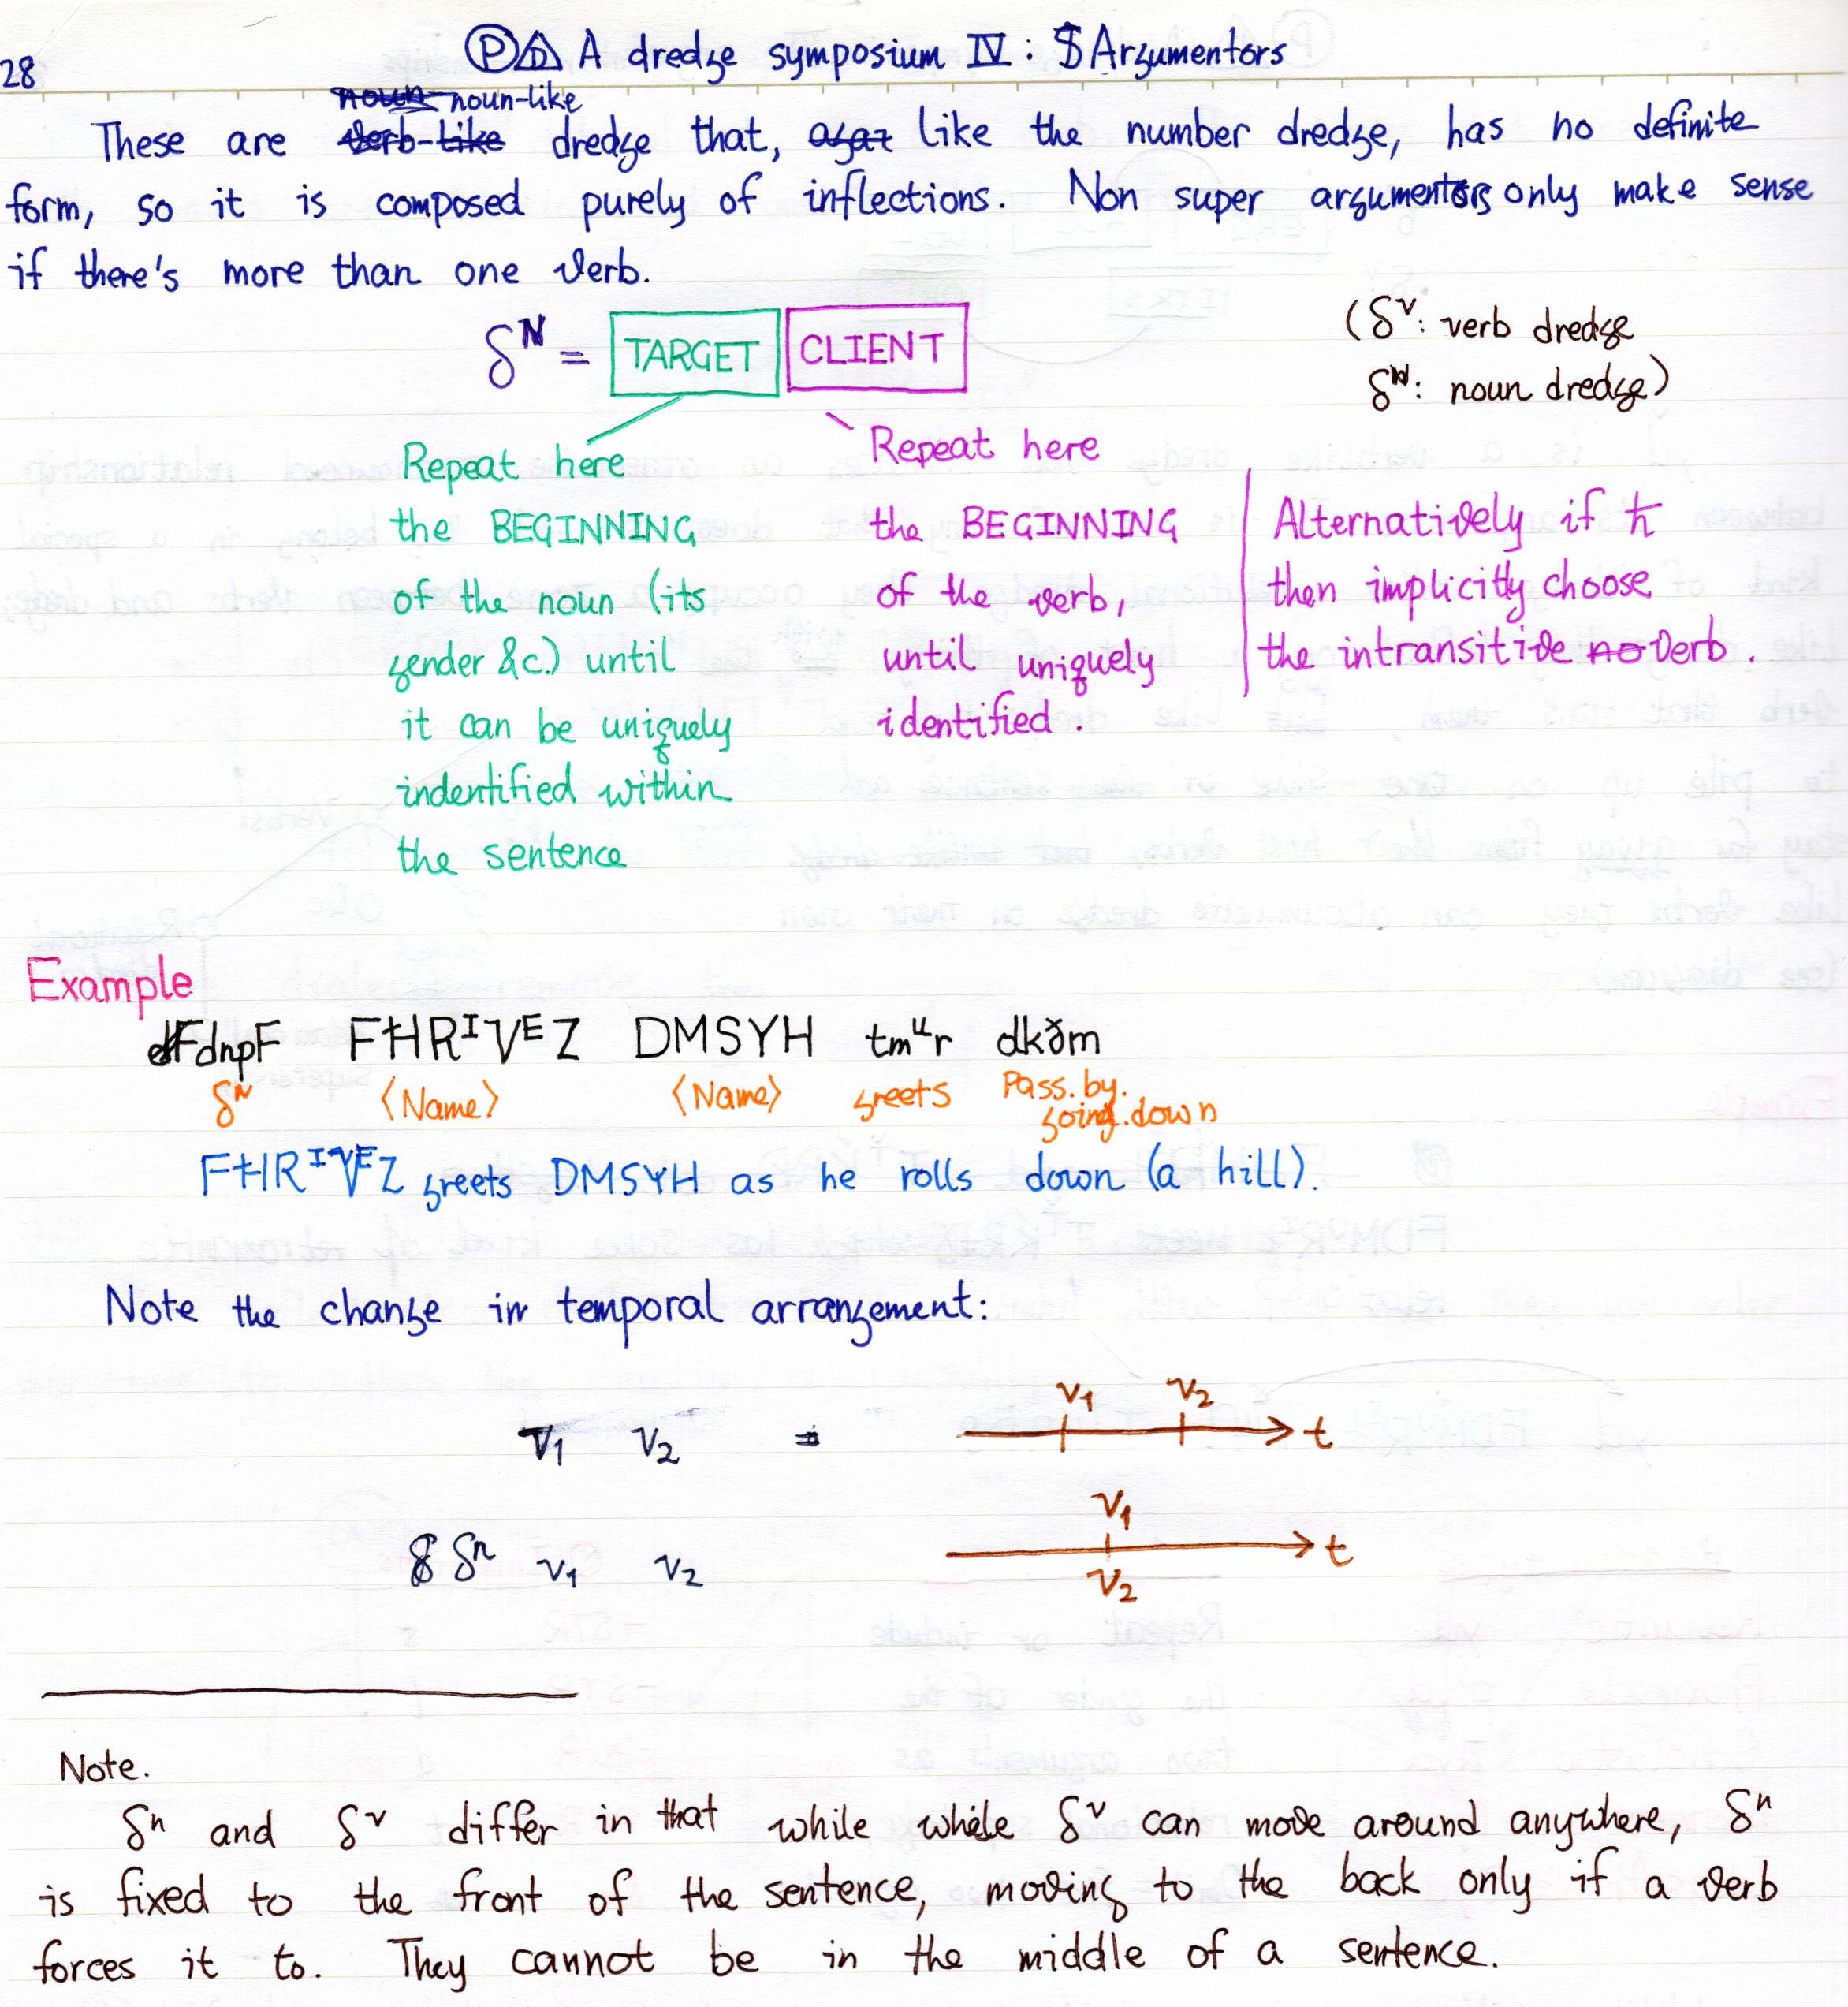 28
ⓅD A dredge symposium IV: $Argumentors
noun noun-like
These are verb-like dredge that, agaz like the number dredge, has no definite
form, so it is composed purely of inflections. Non super argumentors only make sense
if there's more than one verb.
δᴺ = TARGET CLIENT
(δᵛ: verb dredge
δᴺ: noun dredge)
Repeat here
the BEGINNING
of the noun (its
gender &c.) until
it can be uniquely
indentified within
the sentence
Repeat here
the BEGINNING
of the verb,
until uniquely
identified.
Alternatively if ħ
then implicitly choose
the intransitive no verb.
Example
FdnpF FĦRᴵVᴱZ DMSYH tmᵘr dkðm
δⁿ ⟨Name⟩ ⟨Name⟩ greets Pass.by.
going.down
FĦRᴵVᴱZ greets DMSYH as he rolls down (a hill).
Note the change in temporal arrangement:
V₁ V₂ = v₁ v₂ t
δⁿ v₁ v₂ v₁ t
v₂
Note.
δⁿ and δᵛ differ in that while while δᵛ can move around anywhere, δⁿ
is fixed to the front of the sentence, moving to the back only if a verb
forces it to. They cannot be in the middle of a sentence.